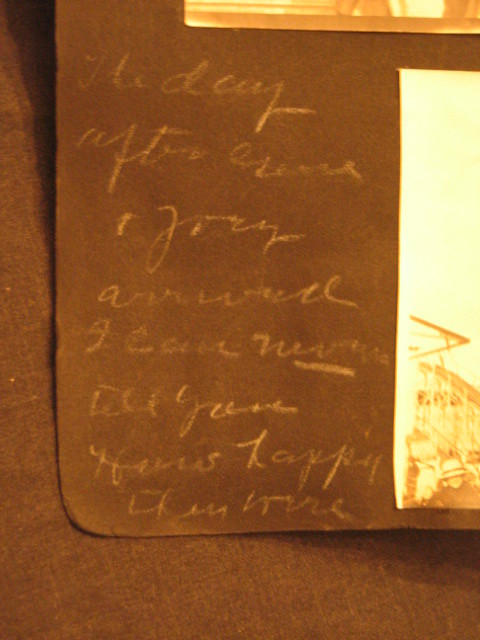 The day
after
& Jory
arrived
I can never
tell you
How happy
they were